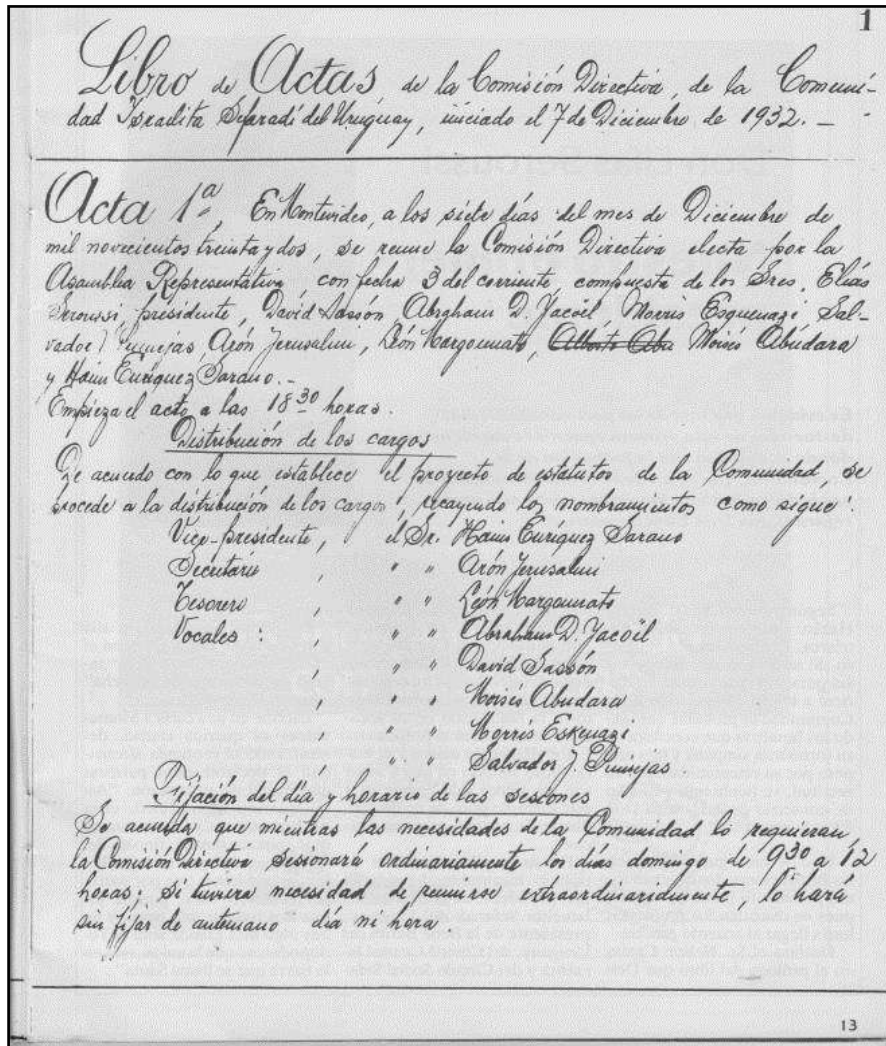 1
Libro de Actas, de la Comisión Directiva, de la Comuni-
dad Israelita Sefaradí del Uruguay, iniciado el 7 de Diciembre de 1932. -
Acta 1ª, En Montevideo, a los siete días del mes de Diciembre de
mil novecientos treinta y dos, se reune la Comisión Directiva electa por la
Asamblea Representativa, con fecha 3 del corriente, compuesta de los Sres, Elías
Seroussi, presidente, David Sassón, Abraham D. Yacoël, Morris Esquenazi, Sal-
vador J. Pumejas, Arón Jerusalmi, León Margounato, Alberto Aba Moisés Abudara
y Haim Enríquez Sarano. -
Empieza el acto a las 18 30 horas.
Distribución de los cargos
De acuerdo con lo que establece el proyecto de estatutos de la Comunidad, se
procede a la distribución de los cargos, recayendo los nombramientos como sigue:
Vice-presidente, el Sr. Haim Enríquez Sarano
Secretario , " " Arón Jerusalmi
Tesorero , " " León Margounato
Vocales : , " " Abraham D. Yacoël
, " " David Sassón
, " " Moisés Abudara
, " " Morris Eskenazi
, " " Salvador J. Pumejas
Fijación del día y horario de las sesiones
Se acuerda que mientras las necesidades de la Comunidad lo requieran,
la Comisión Directiva sesionará ordinariamente los días domingo de 9 30 a 12
horas; si tuviera necesidad de reunirse extraordinariamente, lo hará
sin fijar de antemano día ni hora.
13